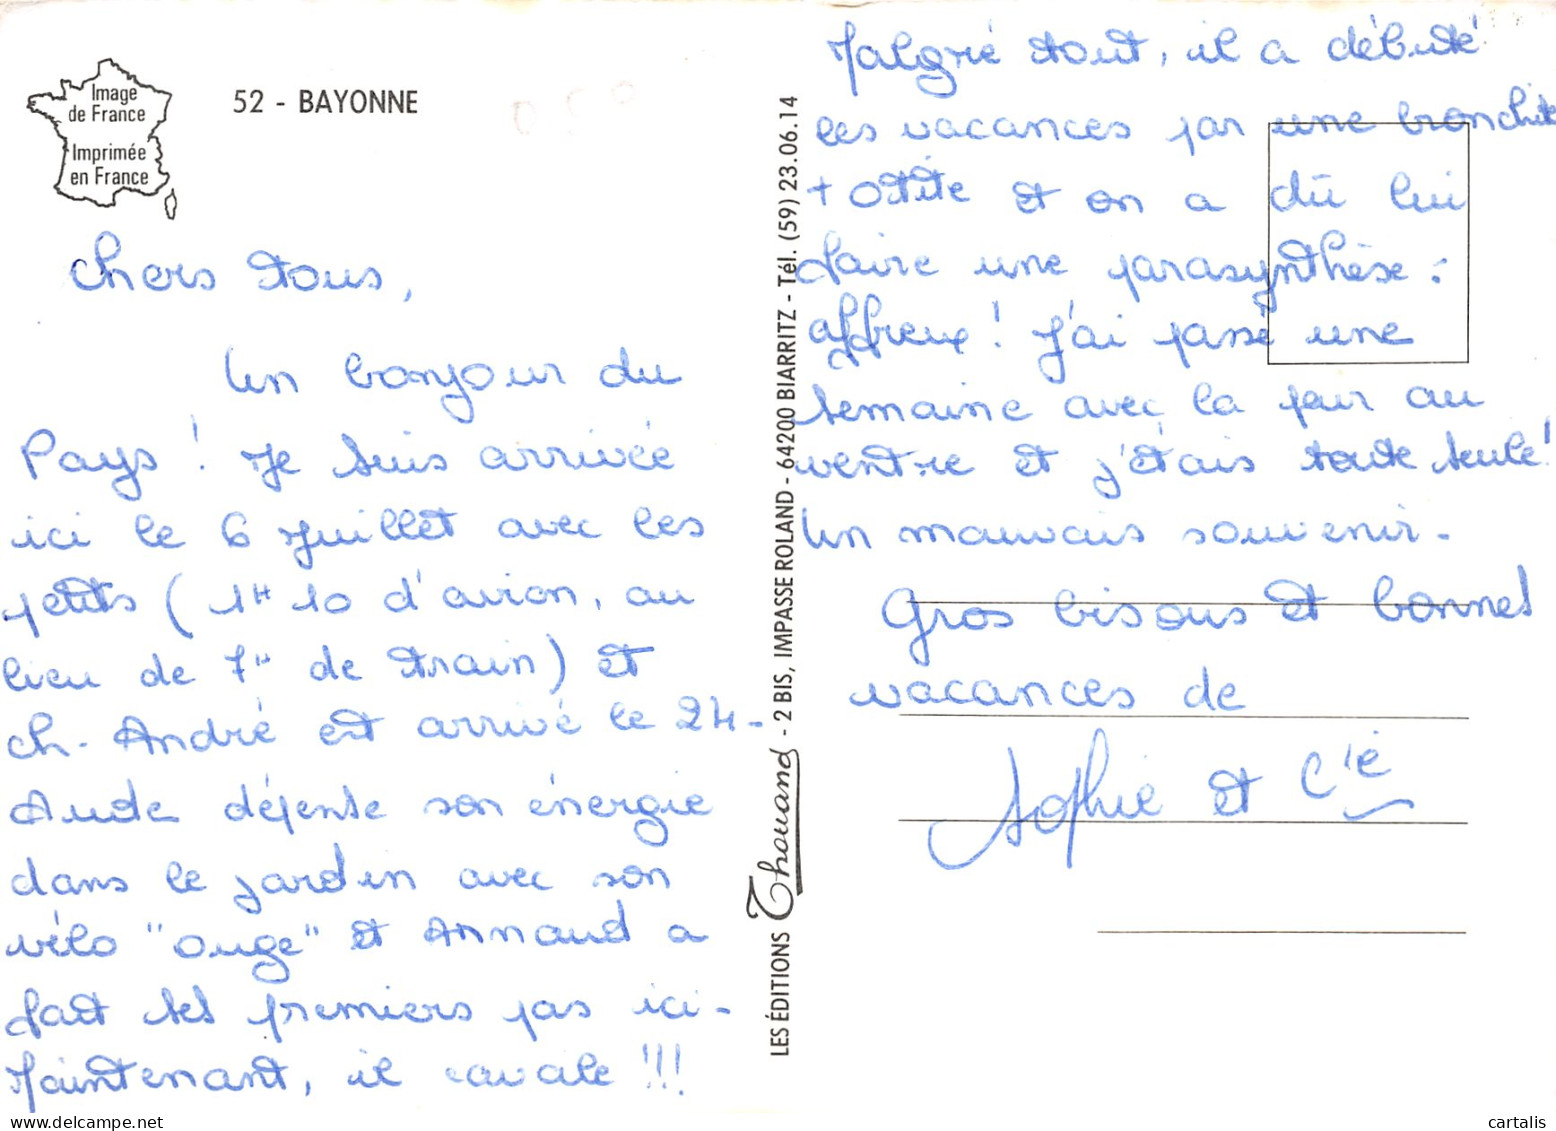 Image
de France
Imprimée
en France
52 - BAYONNE
Chers tous,
Un bonjour du
Pays ! Je suis arrivée
ici le 6 Juillet avec les
petits (1H 10 d'avion, au
lieu de 7H de train) et
Ch. André est arrivé le 24 -
Aude dépense son énergie
dans le jardin avec son
vélo "ouge" et Arnaud a
fait ses premiers pas ici -
Maintenant, il cavale !!!
LES ÉDITIONS Thouand - 2 BIS, IMPASSE ROLAND - 64200 BIARRITZ - Tél. (59) 23.06.14
Malgré tout, il a débuté
les vacances par une bronchite
+ otite et on a dû lui
faire une parasynthèse :
affreux ! J'ai passé une
semaine avec la peur au
ventre et j'étais toute seule !
Un mauvais souvenir -
Gros bisous et bonnes
vacances de
Sophie et Cie
cartalis